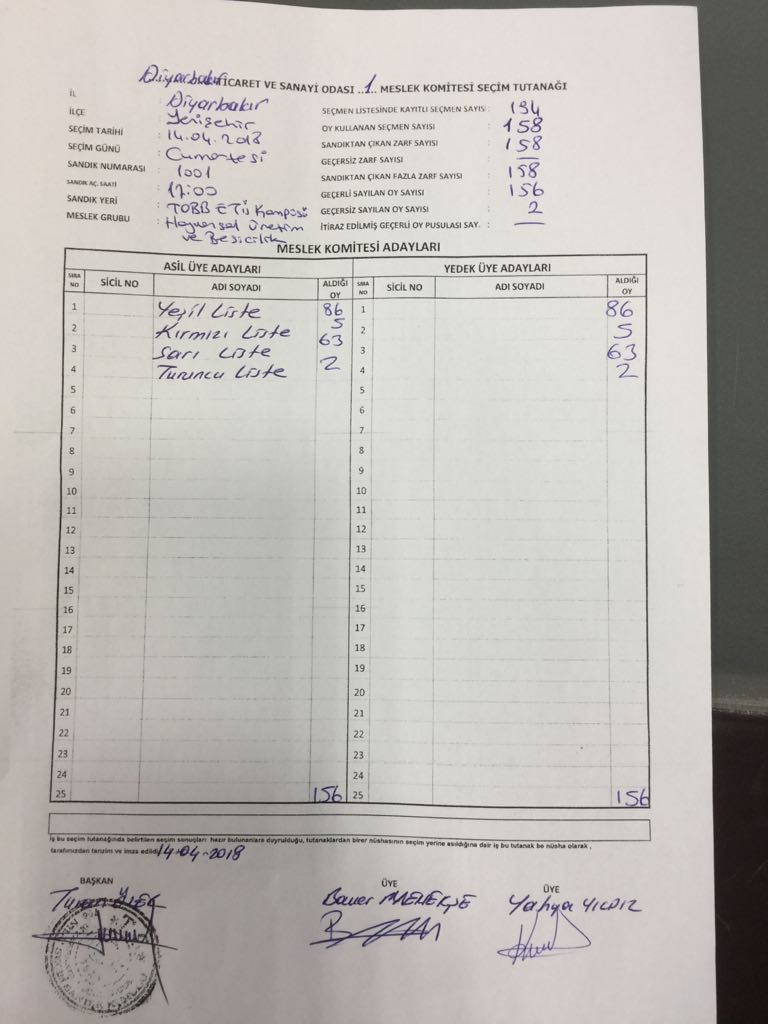 Diyarbakır TİCARET VE SANAYİ ODASI ..1.. MESLEK KOMİTESİ SEÇİM TUTANAĞI
İL : Diyarbakır
İLÇE : Yenişehir
SEÇİM TARİHİ : 14.04.2018
SEÇİM GÜNÜ : Cumartesi
SANDIK NUMARASI : 1001
SANDIK AÇ. SAATİ : 17:00
SANDIK YERİ : TOBB ETÜ Kampüsü
MESLEK GRUBU : Hayvansal Üretim ve Besicilik
SEÇMEN LİSTESİNDE KAYITLI SEÇMEN SAYISI : 194
OY KULLANAN SEÇMEN SAYISI : 158
SANDIKTAN ÇIKAN ZARF SAYISI : 158
GEÇERSİZ ZARF SAYISI : —
SANDIKTAN ÇIKAN FAZLA ZARF SAYISI : 158
GEÇERLİ SAYILAN OY SAYISI : 156
GEÇERSİZ SAYILAN OY SAYISI : 2
İTİRAZ EDİLMİŞ GEÇERLİ OY PUSULASI SAY. : —
MESLEK KOMİTESİ ADAYLARI
ASİL ÜYE ADAYLARI YEDEK ÜYE ADAYLARI
SIRA NO SİCİL NO ADI SOYADI ALDIĞI OY SIRA NO SİCİL NO ADI SOYADI ALDIĞI OY
1 Yeşil Liste 86 1 86
2 Kırmızı Liste 5 2 5
3 Sarı Liste 63 3 63
4 Turuncu Liste 2 4 2
5 5
6 6
7 7
8 8
9 9
10 10
11 11
12 12
13 13
14 14
15 15
16 16
17 17
18 18
19 19
20 20
21 21
22 22
23 23
24 24
25 156 25 156
İş bu seçim tutanağında belirtilen seçim sonuçları hazır bulunanlara duyrulduğu, tutanaklardan birer nüshasının seçim yerine asıldığına dair iş bu tutanak be nüsha olarak ,
tarafımızdan tanzim ve imza edildi 14-04-2018
BAŞKAN ÜYE ÜYE
Yahya YILDIZ